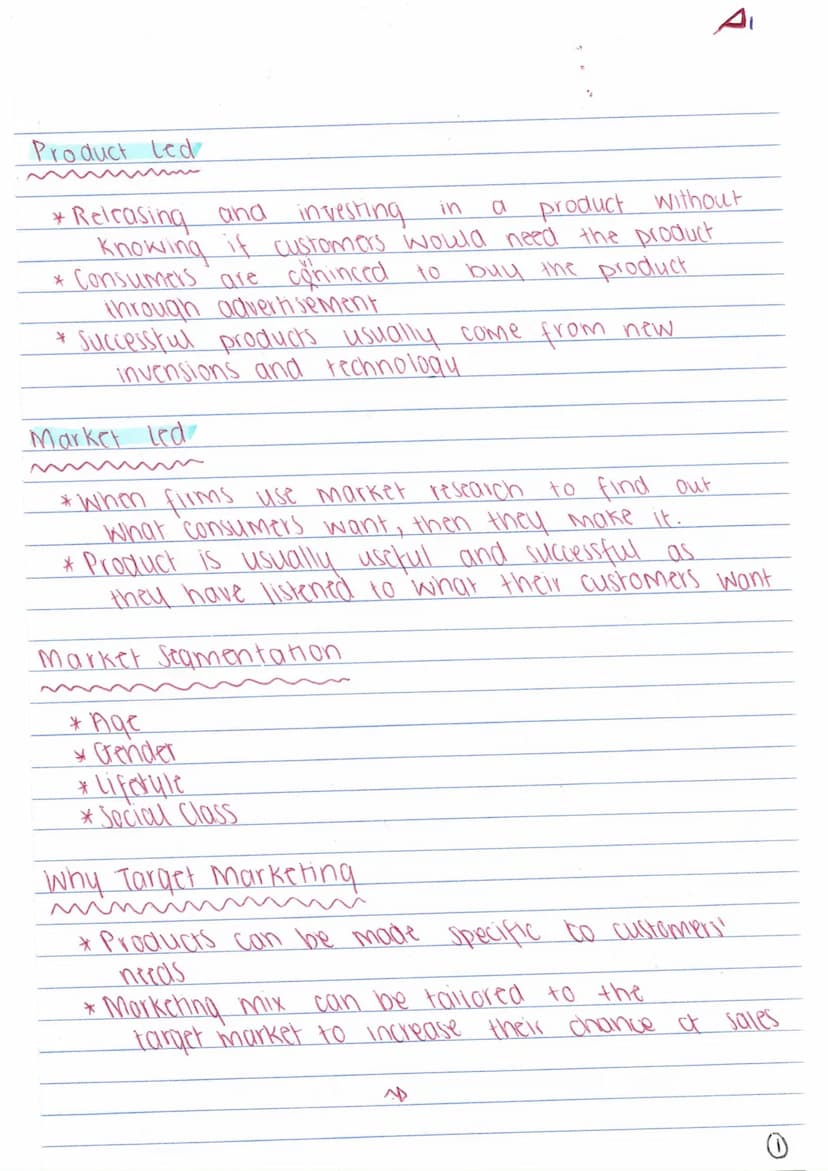 A1
Product Led
* Releasing and investing in a product without
knowing if customers would need the product
* Consumers are convinced to buy the product
through advertisement
* Successful products usually come from new
invensions and technology
Market Led
* When firms use market research to find out
what consumers want, then they make it.
* Product is usually useful and successful as
they have listened to what their customers want
Market Segmentation
* Age
* Gender
* Lifestyle
* Social Class
Why Target Marketing
* Products can be made specific to customers'
needs
* Marketing mix can be tailored to the
target market to increase their chance of sales
1